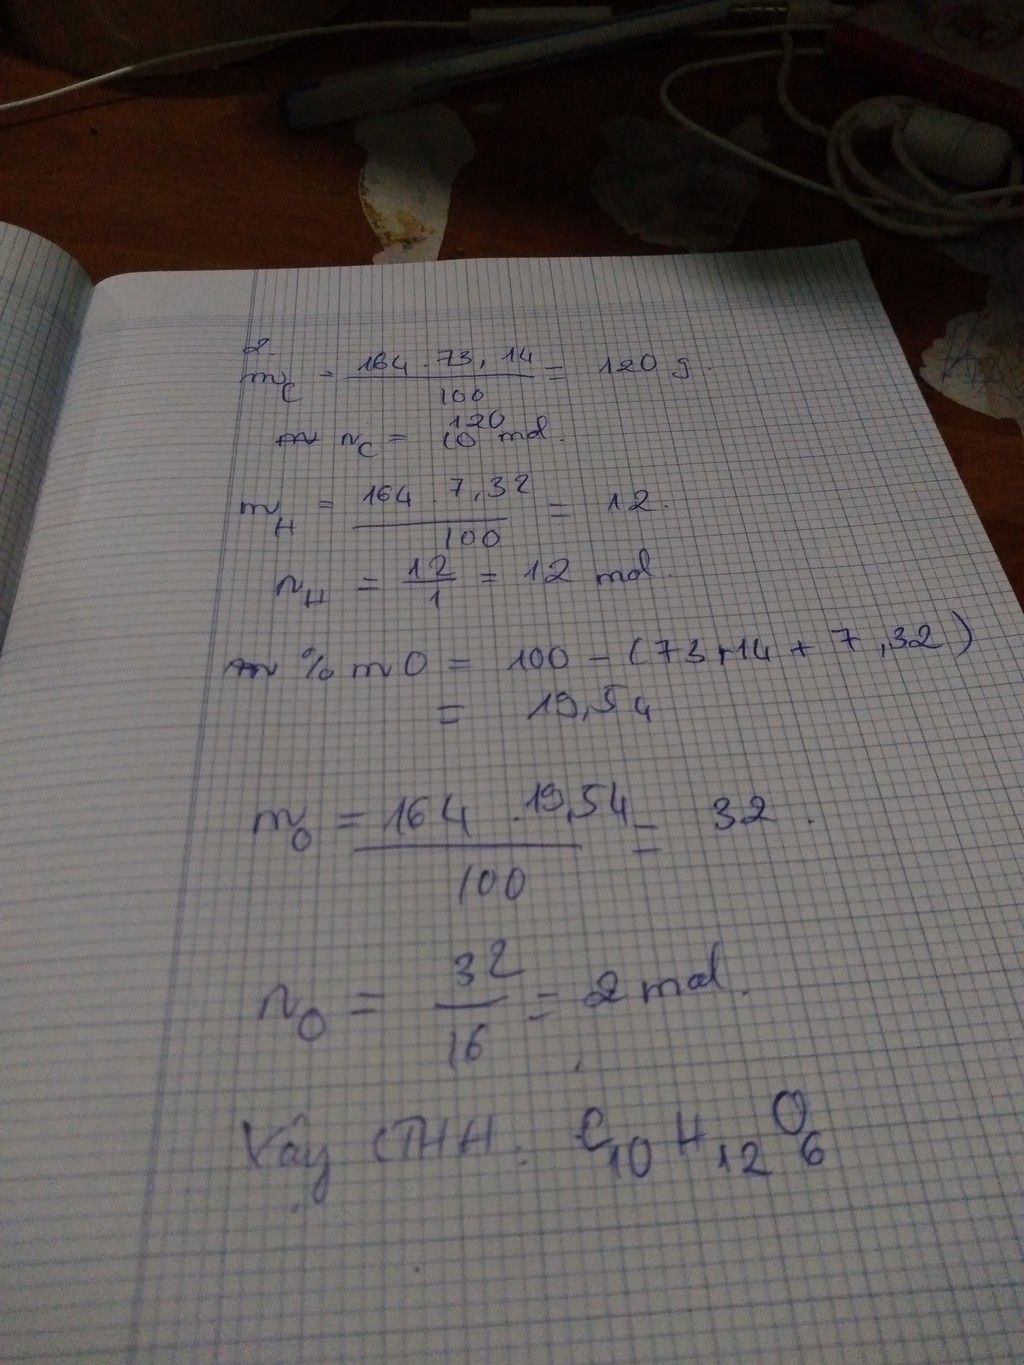 2.
m_C = 164 . 73,14 / 100 = 120 g.
n_C = 120 / 10 mol.
m_H = 164 . 7,32 / 100 = 12.
n_H = 12 / 1 = 12 mol.
% m O = 100 - (73,14 + 7,32)
= 19,54
m_O = 164 . 19,54 / 100 = 32 .
n_O = 32 / 16 = 2 mol.
Vậy CTHH: C10 H12 O6